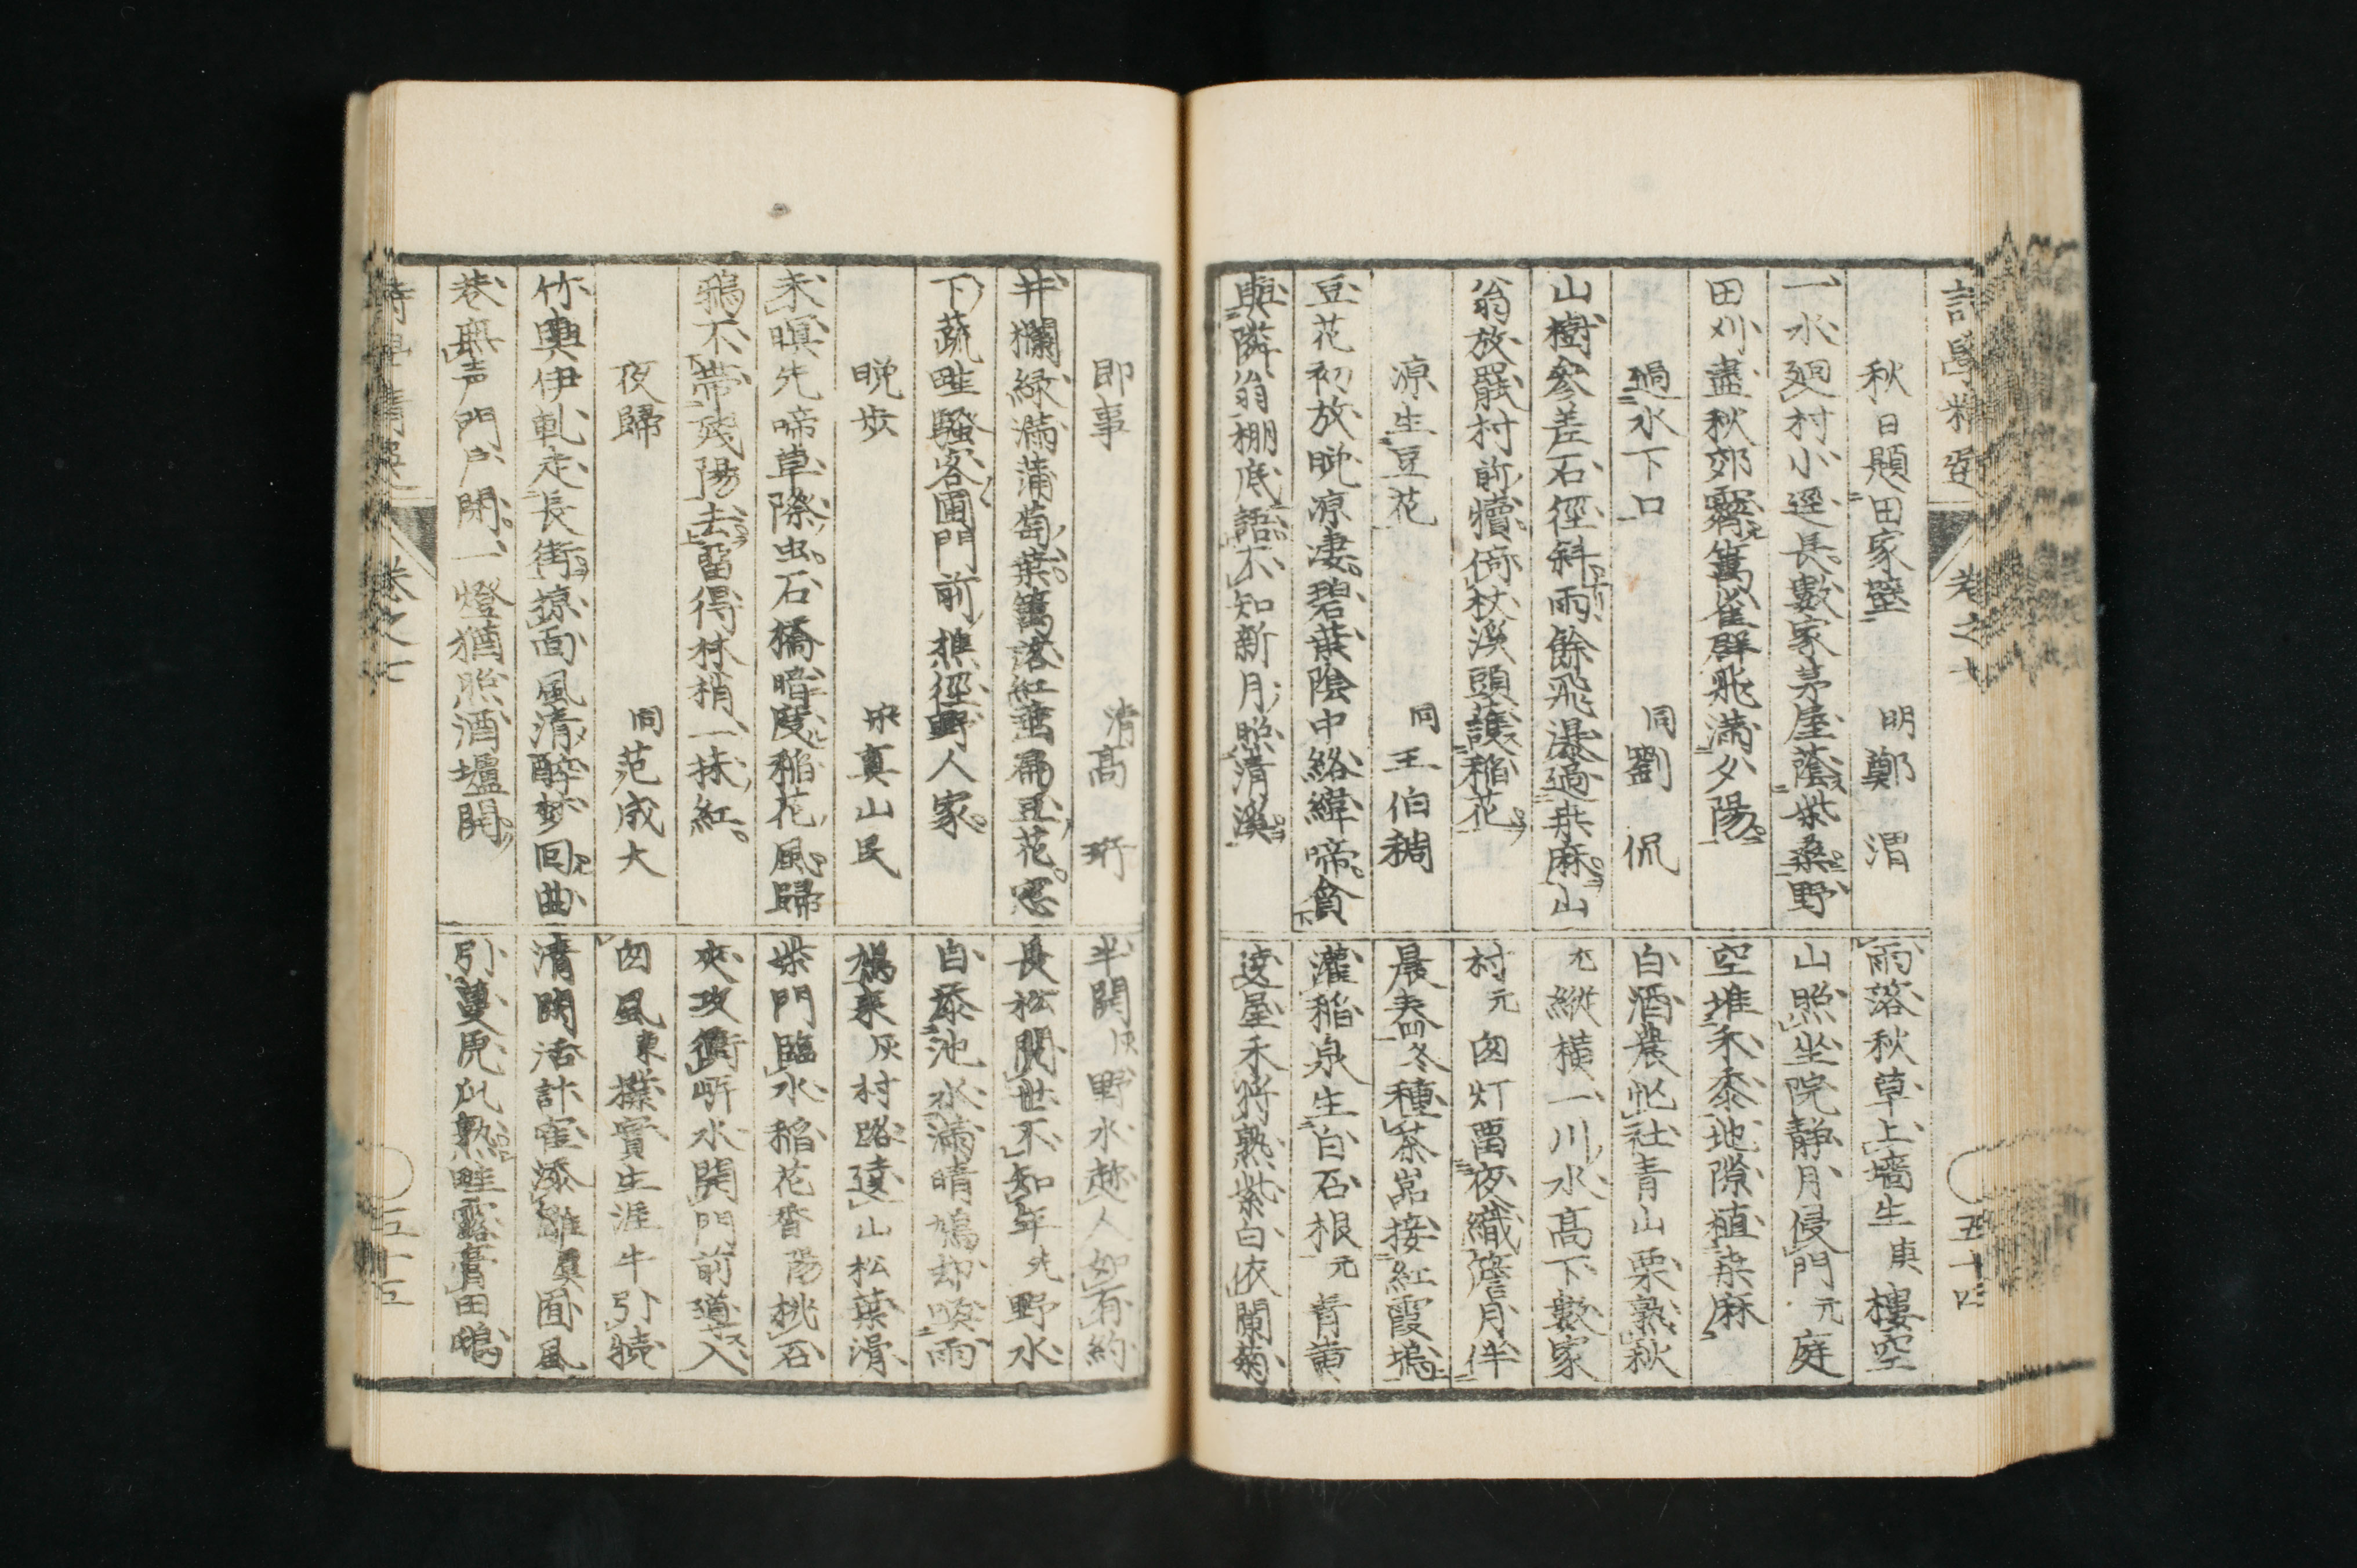 秋日題田家壁　明鄭渭
一水廻村小逕長數家茅屋蔭柴桑野
田刈盡秋郊霽萬雀群飛満夕陽
過水下口　同劉侃
山樹參差石徑斜雨餘飛瀑過桒麻山
翁放罷村前犢倚杖溪頭護稲花
凉生豆花　同王伯稠
豆花初放晩凉凄碧葉陰中絡緯啼貪
與隣翁棚底語不知新月照清溪
雨落秋草上墻生庚樓空
山照坐院静月侵門元庭
空堆禾黍地隙植桒麻
白酒農忙社青山栗熟秋
尤縦横一川水髙下數家
村元囱灯畱夜織簷月伴
晨舂冬種茶嵓接紅霞塢
灌稲泉生白石根元青黄
遶屋禾将熟紫白依闌菊
卷之七
五十四
即事　清髙珩
井欄綠満蒲萄葉籬落紅垂扁豆花窓
下蔬畦騷客圃門前樵徑野人家
晩歩　宋真山民
未暝先啼草際虫石橋暗度稲花風歸
鴉不帶殘陽去畱得林梢一抹紅
夜歸　同范成大
竹輿伊軋走長街掠面風清醉梦回曲
巷無声門戸閉一燈猶照酒壚開
半開灰野水趂人如有約
長松閲世不知年先野水
自添池水満晴鳩却喚雨
鳩来灰村路遶山松葉滑
柴門臨水稲花香陽桃石
夾攻衝㪽水開門前導入
囱風東擽實生涯牛引犢
清閑活計窓添雛眞囿風
引蔓兎瓜熟畦露膏田鴨
卷之七
五十五